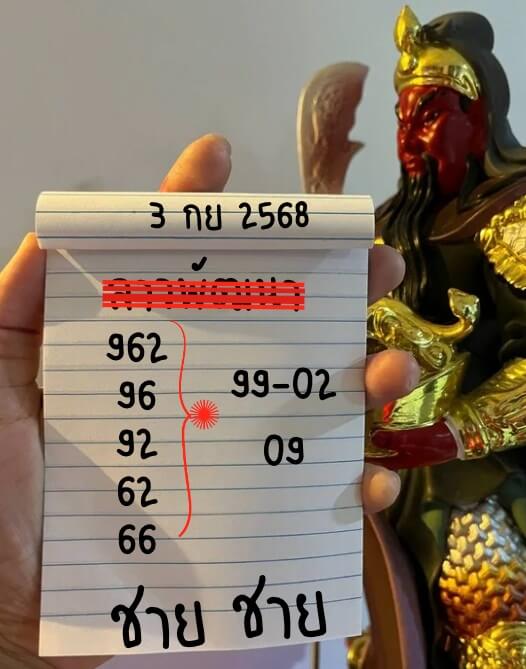 3 กย 2568
962
96
92
62
66
99-02
09
ชาย ชาย